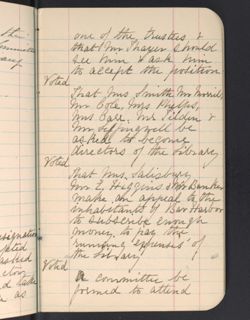 one of the trustees, &
that Mr Thayer should
see him & ask him
to accept the position
Voted
That Mrs. Smith, Mr Morrill,
Mr Cole, Mrs Phelps,
Mrs Carr, Mr
Mr will be
asked to become
directors of the library
Voted
that Mrs. Salisbury,
Mr E, Higgins & Mr Bunker
make an appeal to the
inhabitants of Bar Harbor
to subscribe enough
money, to pay the
running "expenses" of
the library.
Voted
A committee be
formed to attend